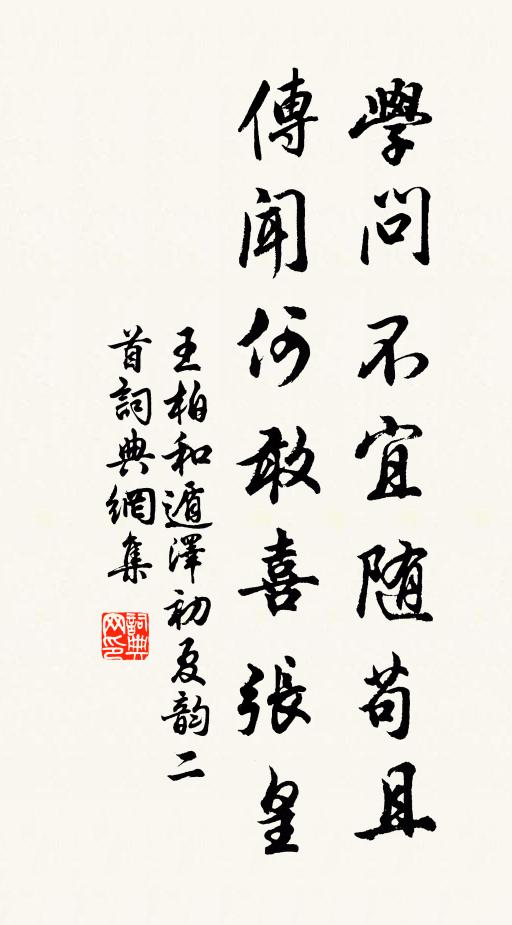 學問不宜随苟且
傳聞何敢喜張皇
王柏和遁澤初夏韵二
首詞典網集
詞典网印